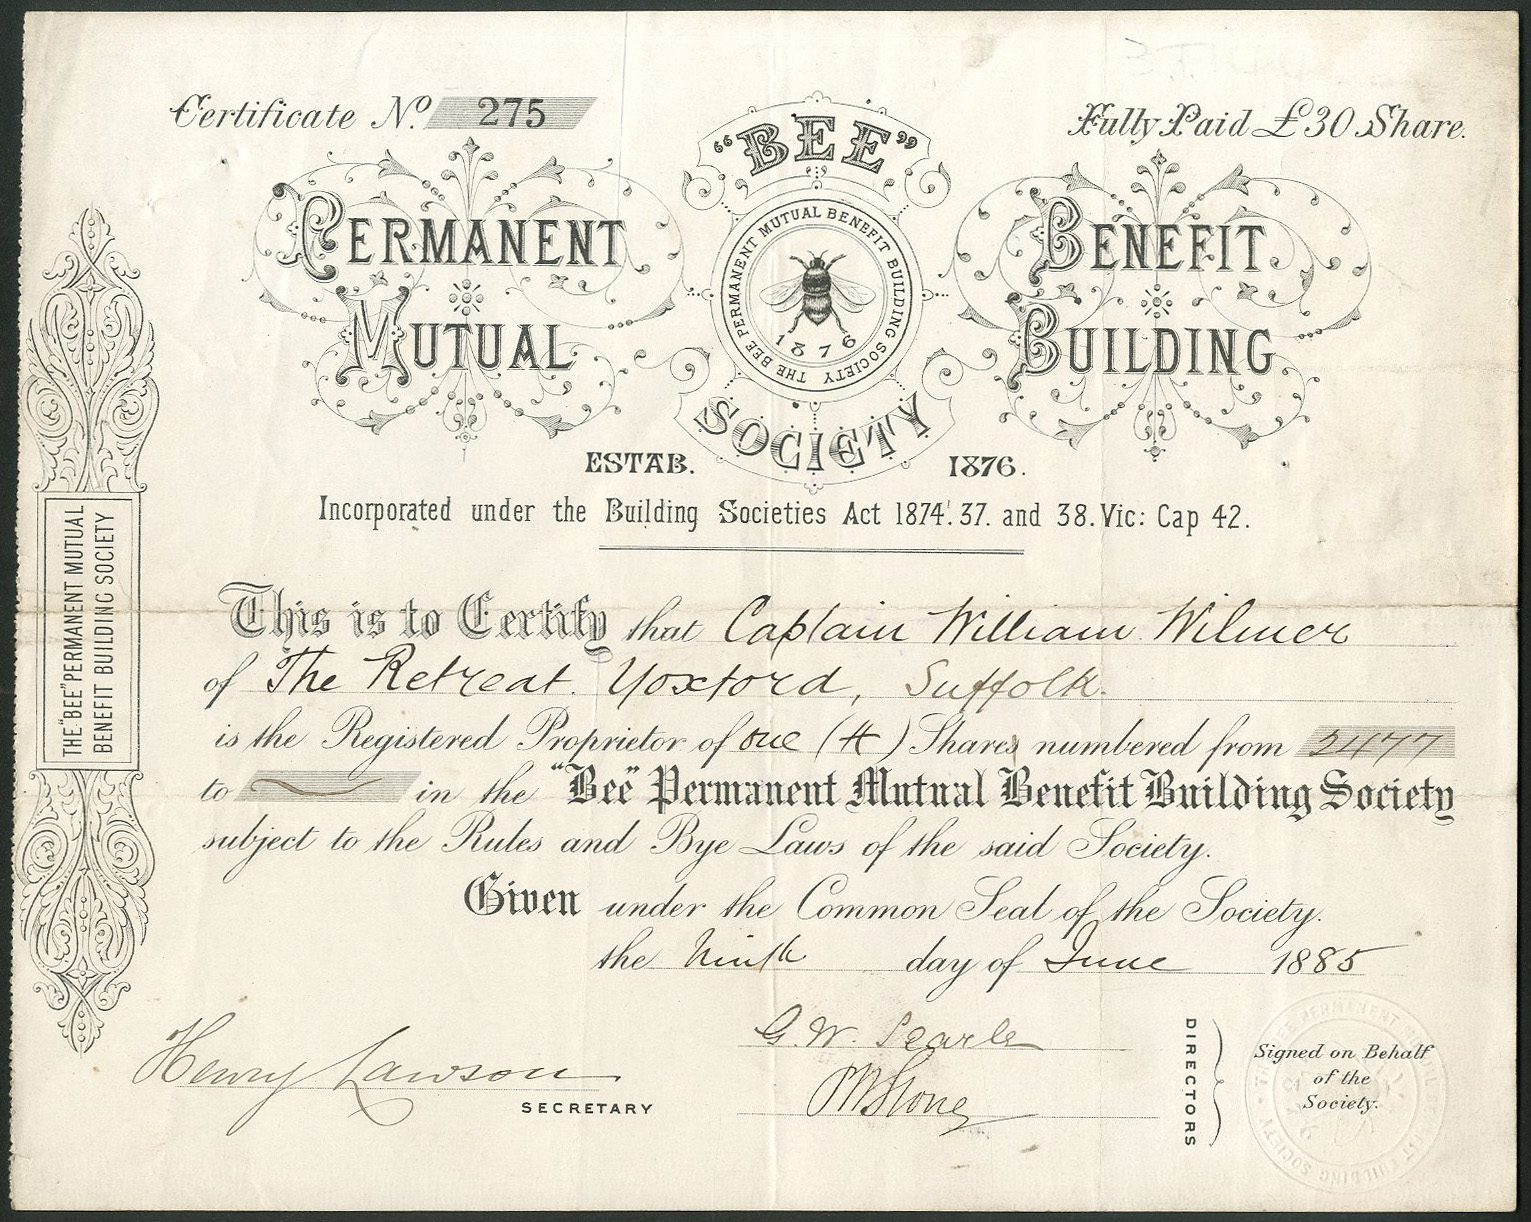 Certificate No. 275
Fully Paid £30 Share.
"BEE"
PERMANENT
MUTUAL
THE BEE PERMANENT MUTUAL BENEFIT BUILDING SOCIETY
1876
BENEFIT
BUILDING
SOCIETY
ESTAB. 1876.
Incorporated under the Building Societies Act 1874'. 37. and 38. Vic: Cap 42.
THE "BEE" PERMANENT MUTUAL
BENEFIT BUILDING SOCIETY
This is to Certify that Captain William Wilmer
of The Retreat. Yoxford, Suffolk.
is the Registered Proprietor of one ( ) Shares numbered from 2477
to in the "Bee" Permanent Mutual Benefit Building Society
subject to the Rules and Bye Laws of the said Society.
Given under the Common Seal of the Society.
the Ninth day of June 1885
Henry Lawson
SECRETARY
G. W. Searle
Stone
DIRECTORS
Signed on Behalf
of the
Society.